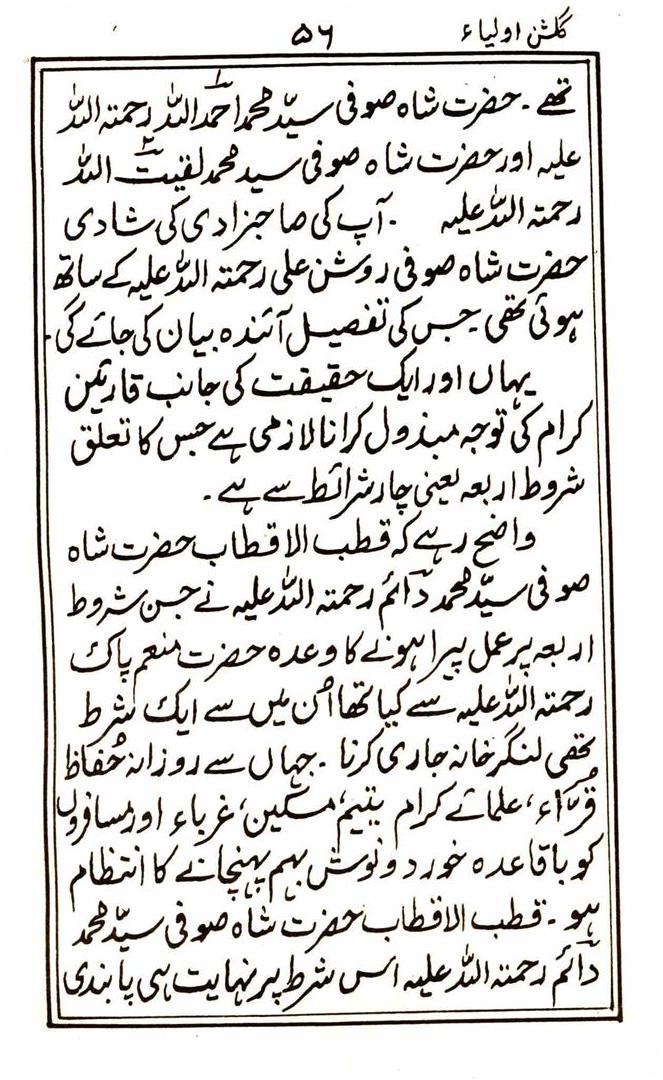 گلشن اولیاء ۵۶
تھے ۔ حضرت شاہ صوفی سیّد محمد احمد اللہ رحمتہ اللہ
علیہ اور حضرت شاہ صوفی سید محمد لقیت اللہ
رحمتہ اللہ علیہ ۔ آپ کی صاحبزادی کی شادی
حضرت شاہ صوفی روشن علی رحمتہ اللہ علیہ کے ساتھ
ہوئی تھی ۔ جس کی تفصیل آئندہ بیان کی جائے گی ۔
یہاں اور ایک حقیقت کی جانب قارئین
کرام کی توجہ مبذول کرانا لازمی ہے جس کا تعلق
شروط اربعہ یعنی چار شرائط سے ہے ۔
واضح رہے کہ قطب الاقطاب حضرت شاہ
صوفی سیّد محمد دائم رحمتہ اللہ علیہ نے جن شروط
اربعہ پر عمل پیرا ہونے کا وعدہ حضرت منعم پاک
رحمتہ اللہ علیہ سے کیا تھا اُن میں سے ایک شرط
تھی لنگر خانہ جاری کرنا ۔ جہاں سے روزانہ حُفاظ
قُرّاء، علمائے کرام یتیم، مسکین، غرباء اور مسافروں
کو باقاعدہ خورد و نوش بہم پہنچانے کا انتظام
ہو ۔ قطب الاقطاب حضرت شاہ صوفی سیّد محمد
دائم رحمتہ اللہ علیہ اس شرط پر نہایت ہی پابندی